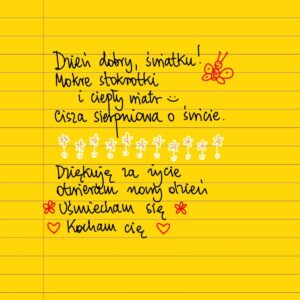 Dzień dobry, światku!
Mokre stokrotki
i ciepły wiatr :)
Cisza sierpniowa o świcie.
Dziękuję za życie
otwieram nowy dzień
Uśmiecham się
Kocham cię